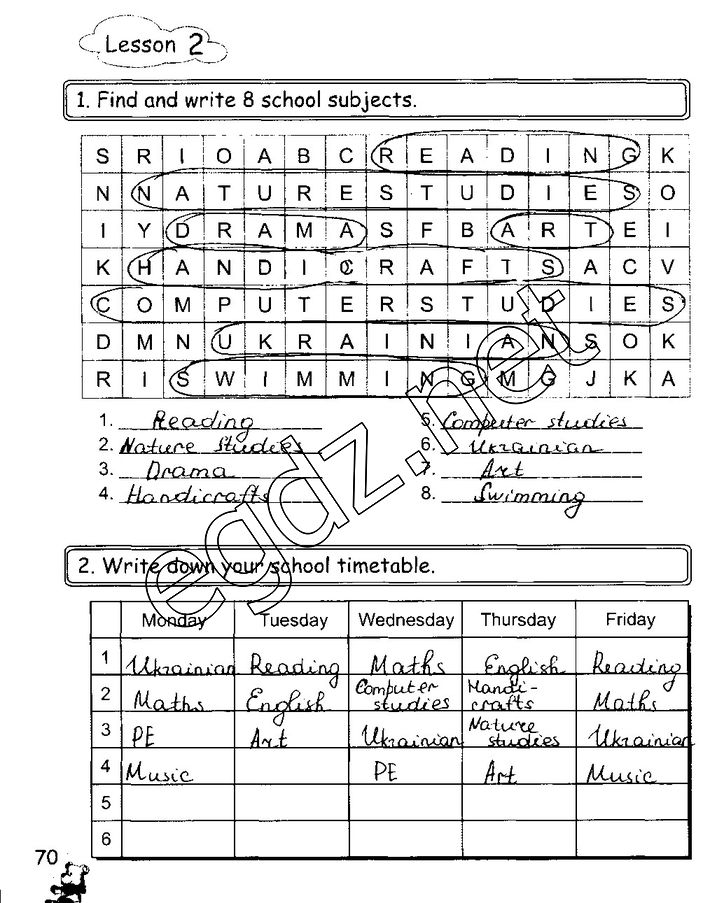 Lesson 2
1. Find and write 8 school subjects.
S R I O A B C R E A D I N G K
N N A T U R E S T U D I E S O
I Y D R A M A S F B A R T E I
K H A N D I C R A F T S A C V
C O M P U T E R S T U D I E S
D M N U K R A I N I A N S O K
R I S W I M M I N G M G J K A
1. Reading 5. Computer studies
2. Nature Studies 6. Ukrainian
3. Drama 7. Art
4. Handicrafts 8. Swimming
egdz.net
2. Write down your school timetable.
Monday Tuesday Wednesday Thursday Friday
1 Ukrainian Reading Maths English Reading
2 Maths English Computer studies Handi-crafts Maths
3 PE Art Ukrainian Nature studies Ukrainian
4 Music PE Art Music
5
6
70